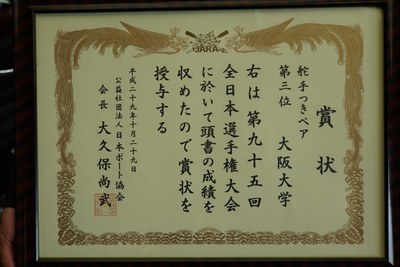 JARA
賞状
舵手つきペア
第三位 大阪大学
右は第九十五回
全日本選手権大会
に於いて頭書の成績を
収めたので賞状を
授与する
平成二十九年十月二十九日
公益社団法人日本ボート協会
会長 大久保尚武